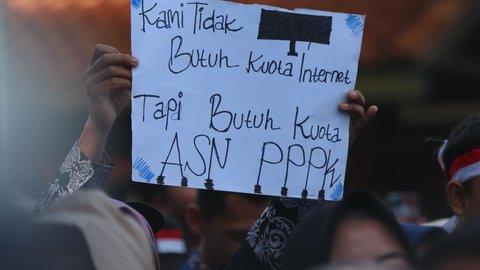 Kami Tidak
Butuh Kuota Internet
Tapi Butuh Kuota
ASN PPPK